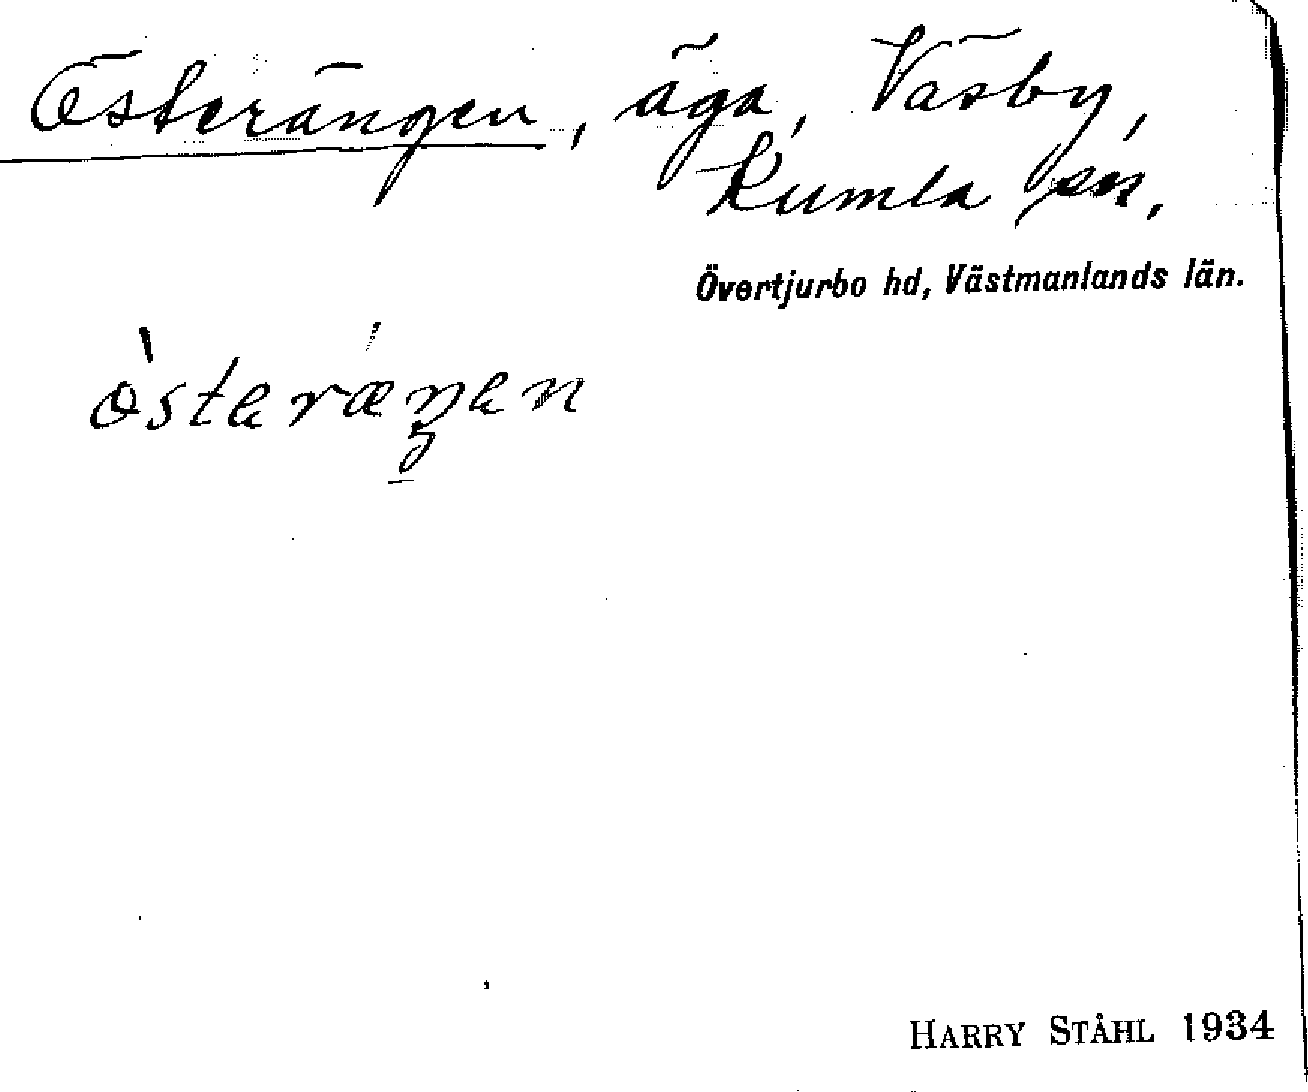 Österängen, äga, Väsby,
Kumla sn,
Övertjurbo hd, Västmanlands län.
HARRY STÅHL 1934